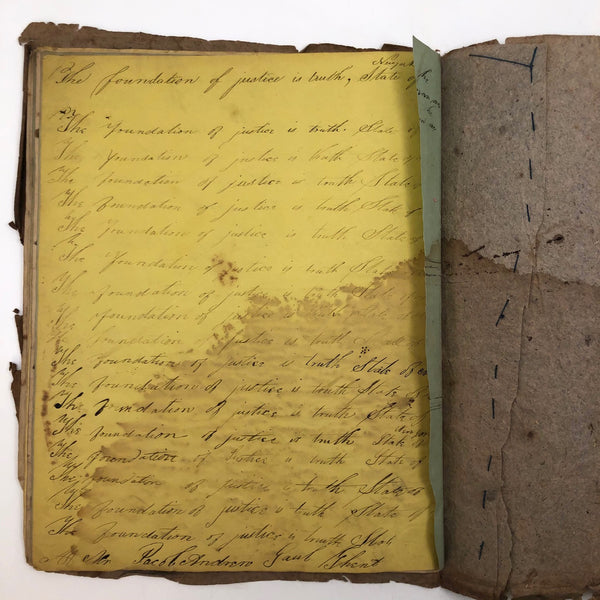 The foundation of justice is truth, State of
The foundation of justice is truth. State of
The foundation of justice is truth State of
The foundation of justice is truth State
The foundation of justice is truth State of
The foundation of justice is truth State of
The foundation of justice is truth State
The foundation of justice is truth State of
The foundation of justice is truth State
The foundation of justice is truth State of
The foundation of justice is truth State of
The foundation of justice is truth State of
The foundation of justice is truth State of
The foundation of justice is truth State
The foundation of justice is truth State of
The foundation of justice is truth State
The foundation of justice is truth State of
The foundation of justice is truth State
Mr. Jacob Andrew